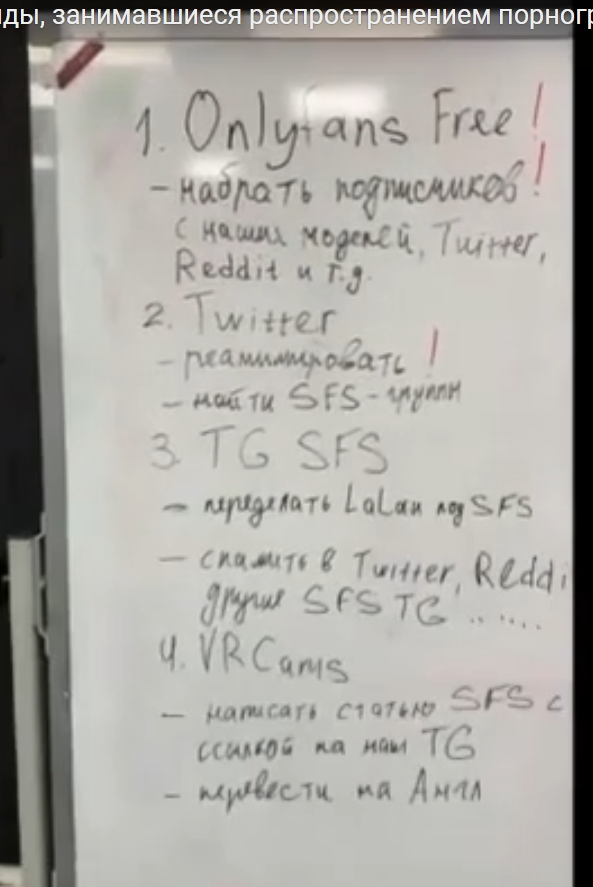 ды, занимавшиеся распространением порногр
1. Onlyfans Free!
- набрать подписчиков!
с наших моделей, Twitter,
Reddit и т.д.
2. Twitter
- реанимировать!
- найти SFS-группы
3. TG SFS
- переделать LaLan под SFS
- спамить в Twitter, Reddi
другие SFS TG .. ....
4. VRCams
- написать статью SFS с
ссылкой на наш TG
- перевести на Англ